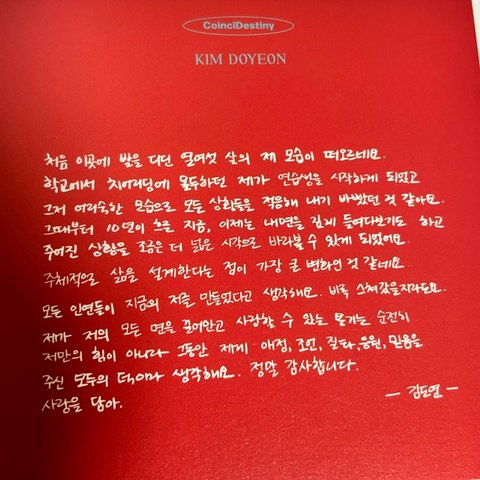 CoinciDestiny
KIM DOYEON
처음 이곳에 발을 디딘 열여섯 살의 제 모습이 떠오르네요.
학교에서 치어리딩에 몰두하던 제가 연습생을 시작하게 되었고
그저 어리숙한 모습으로 모든 상황들을 적응해 내기 바빴던 것 같아요.
그때부터 10년이 흐른 지금, 이제는 내면을 깊게 들여다보기도 하고
주어진 상황을 조금은 더 넓은 시각으로 바라볼 수 있게 되었어요.
주체적으로 삶을 설계한다는 점이 가장 큰 변화인 것 같네요.
모든 인연들이 지금의 저를 만들었다고 생각해요. 비록 스쳐갔을지라도요.
제가 저의 모든 면을 끌어안고 사랑할 수 있는 용기는 순전히
저만의 힘이 아니라 그동안 제게 애정, 조언, 질타, 응원, 믿음을
주신 모두의 덕이라 생각해요. 정말 감사합니다.
사랑을 담아.
— 김도연 —